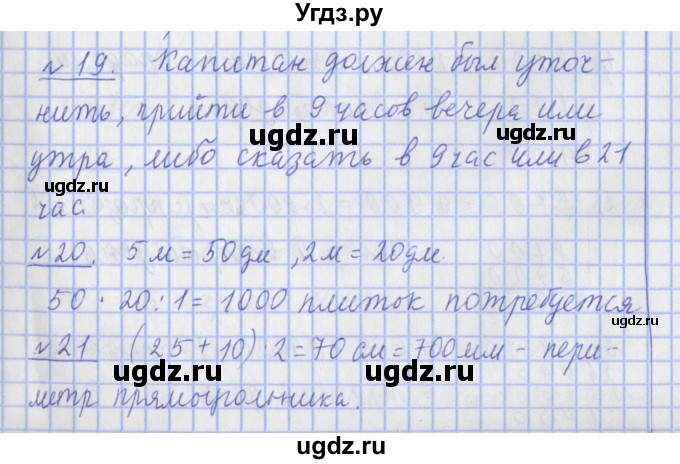 Угдз.ру
№19. Капитан должен был уточ-
нить, прийти в 9 часов вечера или
ugdz.ru ugdz.ru
утра, либо сказать в 9 час или в 21
ugdz.ru ugdz.ru
час
№20. 5 м = 50 дм, 2 м = 20 дм.
ugdz.ru ugdz.ru
50 · 20 : 1 = 1000 плиток потребуется
№21 (25 + 10) · 2 = 70 см = 700 мм – пери-
ugdz.ru ugdz.ru
метр прямоугольника.
ugdz.ru